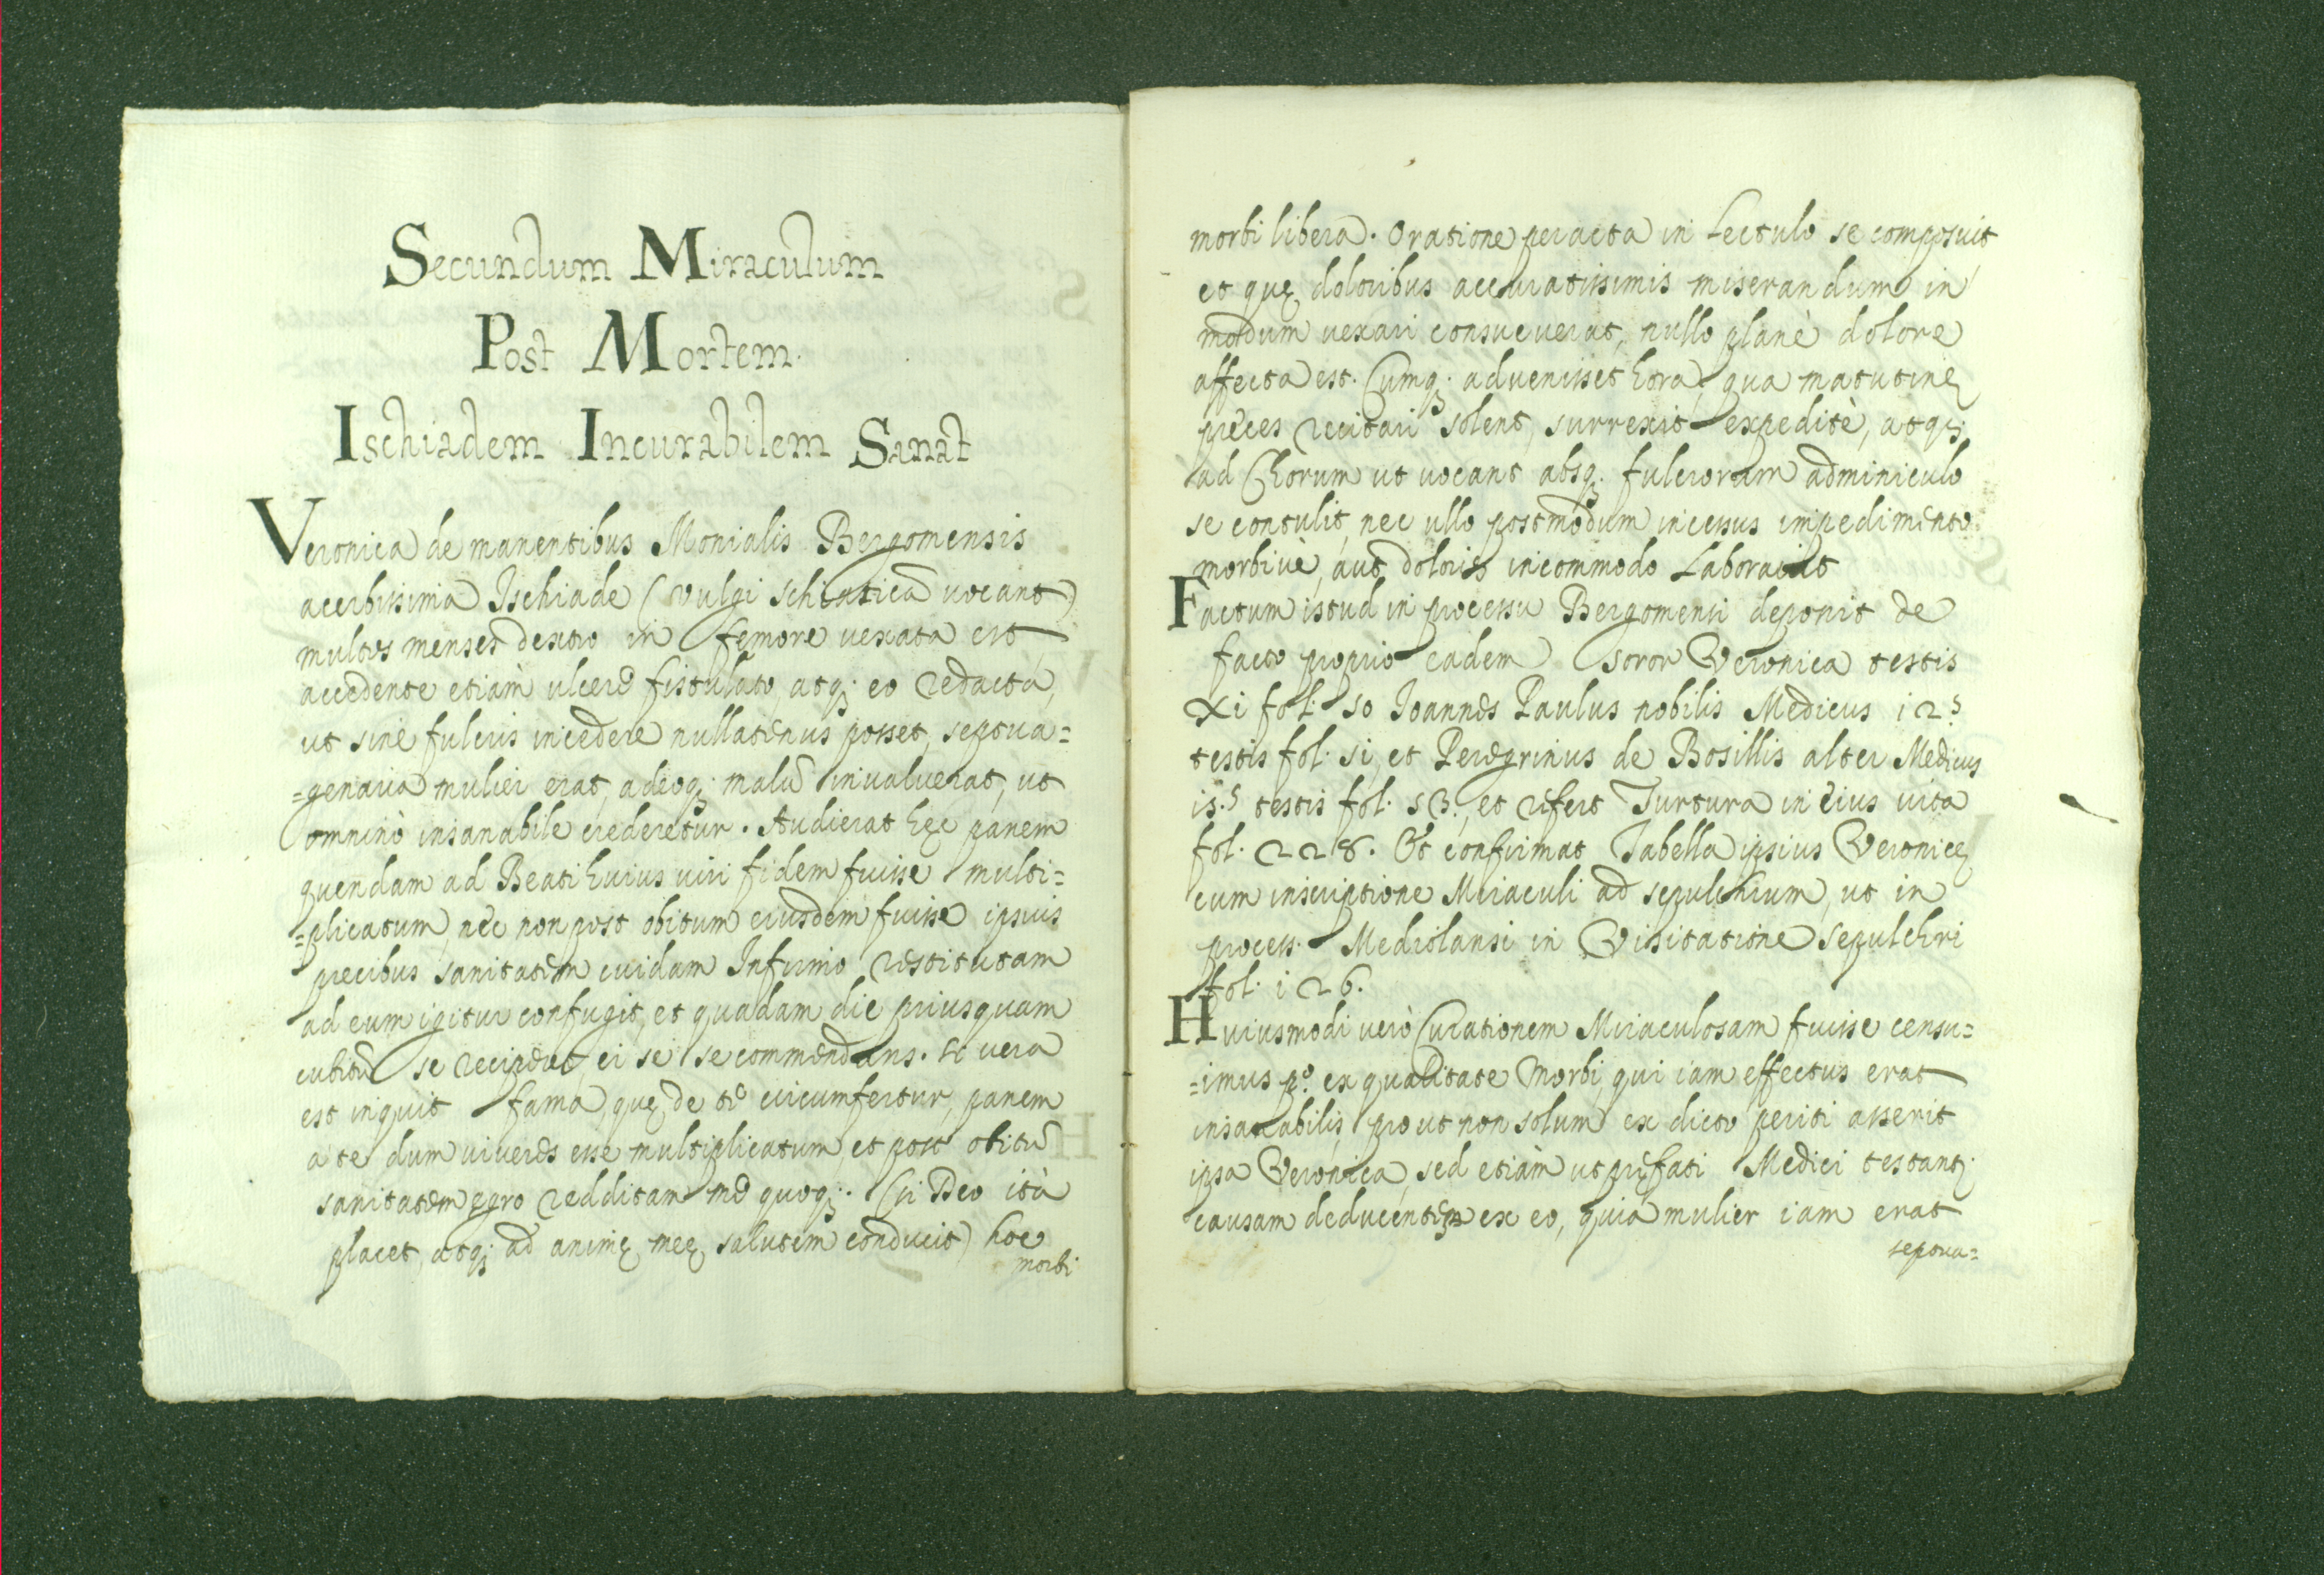 Secundum Miraculum
Post Mortem.
Ischiadem Incurabilem Sanat
Veronica de manentibus Monialis Bergomensis
acerbissima Ischiade (vulgi schiatica vocant)
multos menses dextro in femore vexata est
accedente etiàm ulcere fistulato, atq; eo redacta,
ut sine fulcris incedere nullatenus posset, septua=
=genaria mulier erat, adeoq; malũ invaluerat, ut
omninò insanabile crederetur. Audierat hęc panem
quendam ad Beati huius viri fidem fuisse multi=
=plicatum, nec non post obitum eiusdem fuisse ipsius
precibus sanitatem cuidam Infirmo restitutam
ad eum igitur confugit, et quadam die priusquam
cubitũ se reciperet, ei se se commendans. Si vera
est inquit fama, quę de te circumfertur, panem
a te dum viveres esse multiplicatum, et post obitũ
sanitatem ęgro redditam me quoq; (si Deo ità
placet, atq; ad animę meę salutem conducit) hoc
morbi
morbi libera. Oratione peracta in Lectulo se composuit
et quę doloribus acerbatissimis miserandum in
modum vexari consueverat, nullo planè dolore
affecta est. Cumq; advenisset hora, qua matutinę
preces recitari solent, surrexit expeditè, atq;
ad Chorum ut vocant absq; fulcrorum adminiculo
se contulit, nec ullo postmodum incessus impedimento
morbivè, aut doloris incommodo Laboravit
Factum istud in processu Bergomensi deponit de
facto proprio eadem soror Veronica testis
xi fol. 50 Joannes Paulus nobilis Medicus 12.s
testis fol. 51, et Peregrinus de Bosillis alter Medicus
15.s testis fol. 53, et refert Turtura in eius vita
fol. 228. Et confirmat Tabella ipsius Veronicę
cum inscriptione Miraculi ad sepulchrum, ut in
process. Mediolansi in Visitatione sepulchri
fol. 126.
Huiusmodi verò Curationem Miraculosam fuisse censu=
=imus p.º ex qualitate Morbi, qui iam effectus erat
insanabilis, prout non solum ex dicto periti asserit
ipsa Veronica, sed etiàm ut pręfati Medici testant;
causam deducentes ex eo, quia mulier iam erat
septua=